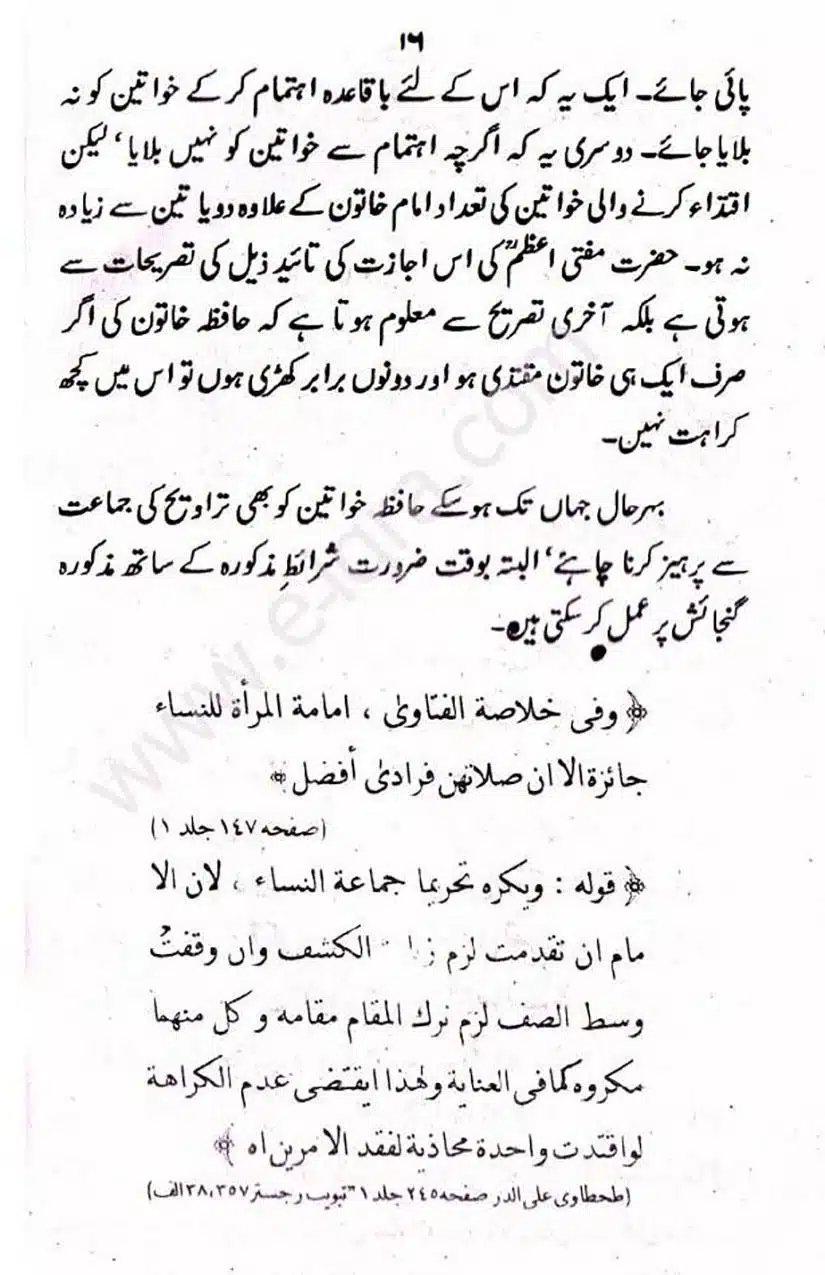 ۱۶
پائی جائے۔ ایک یہ کہ اس کے لئے باقاعدہ اہتمام کر کے خواتین کو نہ
بلایا جائے۔ دوسری یہ کہ اگرچہ اہتمام سے خواتین کو نہیں بلایا، لیکن
اقتداء کرنے والی خواتین کی تعداد امام خاتون کے علاوہ دو یا تین سے زیادہ
نہ ہو۔ حضرت مفتی اعظمؒ کی اس اجازت کی تائید ذیل کی تصریحات سے
ہوتی ہے بلکہ آخری تصریح سے معلوم ہوتا ہے کہ حافظہ خاتون کی اگر
صرف ایک ہی خاتون مقتدی ہو اور دونوں برابر کھڑی ہوں تو اس میں کچھ
کراہت نہیں۔
بہرحال جہاں تک ہو سکے حافظہ خواتین کو بھی تراویح کی جماعت
سے پرہیز کرنا چاہئے، البتہ بوقت ضرورت شرائطِ مذکورہ کے ساتھ مذکورہ
گنجائش پر عمل کر سکتی ہیں۔
﴿ وفی خلاصة الفتاویٰ ، امامة المرأة للنساء
جائزة الا ان صلاتهن فرادیٰ أفضل ﴾
(صفحہ ۱٤۷ جلد ۱)
﴿ قوله : ویکره تحریما جماعة النساء ، لان الا
مام ان تقدمت لزم الکشف وان وقفت
وسط الصف لزم ترك المقام مقامه و کل منهما
مکروه کما فی العنایة ولهذا ایقتضی عدم الکراهة
لو اقتدت واحدة محاذیة لفقد الامرین اه ﴾
(طحطاوی علی الدر صفحہ ۲٤۵ جلد ۱ "تبویب رجسٹر ۳۵۷، ۳۸ الف)
www.e-iqra.com